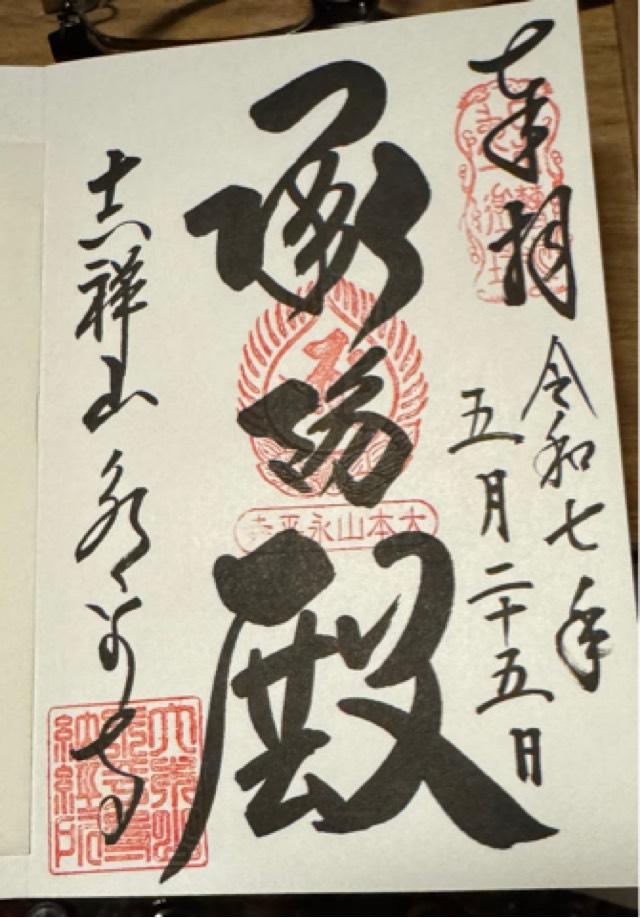 奉拝
令和七年
五月二十五日
承陽殿
大本山永平寺
吉祥山永平寺